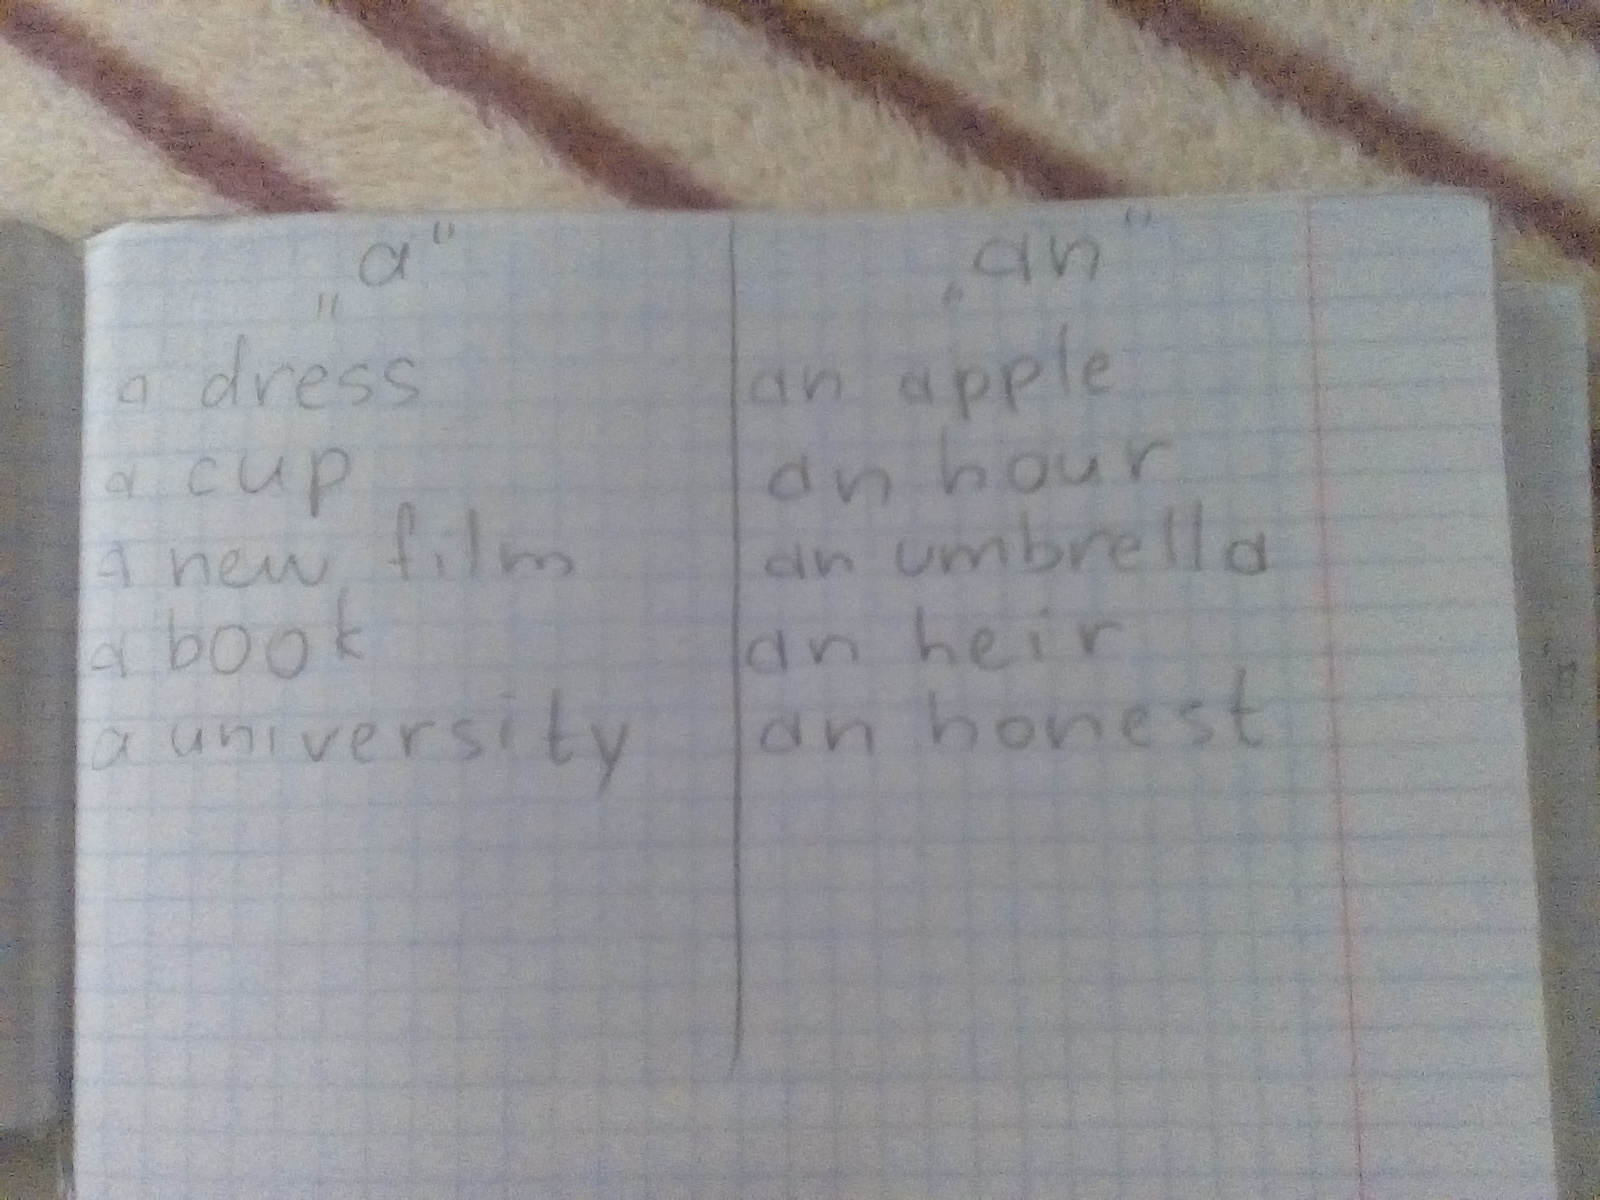 „a“
a dress
a cup
a new film
a book
a university
„an“
an apple
an hour
an umbrella
an heir
an honest